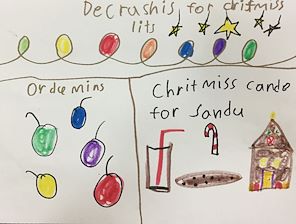 Decrashis for crifmiss
lits
Ordemins
Chritmiss cande
for Sandu